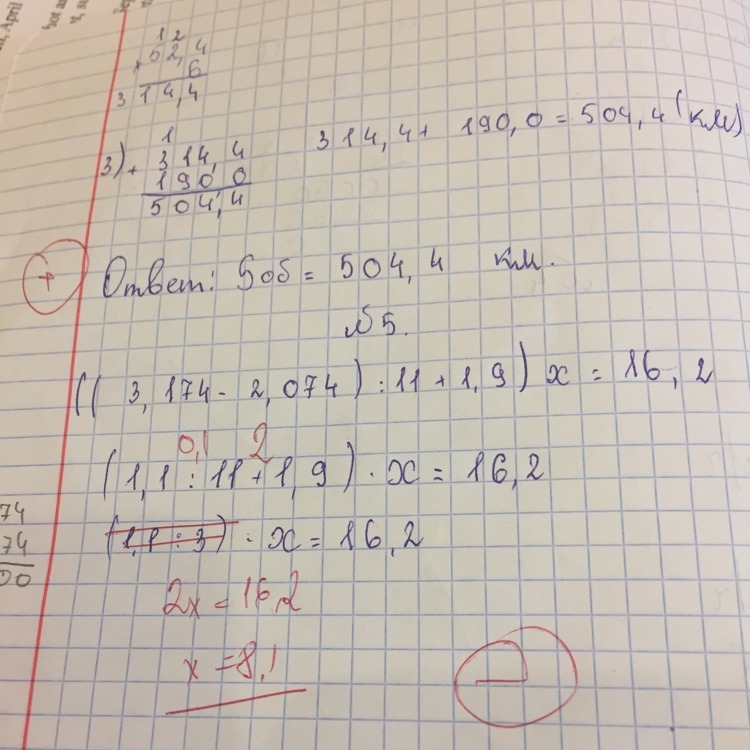 1 2
52,4
× 6
314,4
3) + 1
314,4
190 0
504,4
314,4 + 190,0 = 504,4 (км)
+
Ответ: Sоб = 504,4 км.
№5.
((3,174 - 2,074) : 11 + 1,9) x = 16,2
0,1 2
(1,1 : 11 + 1,9) · x = 16,2
(1,1 : 3) · x = 16,2
74
74
00
2x = 16,2
x = 8,1
April